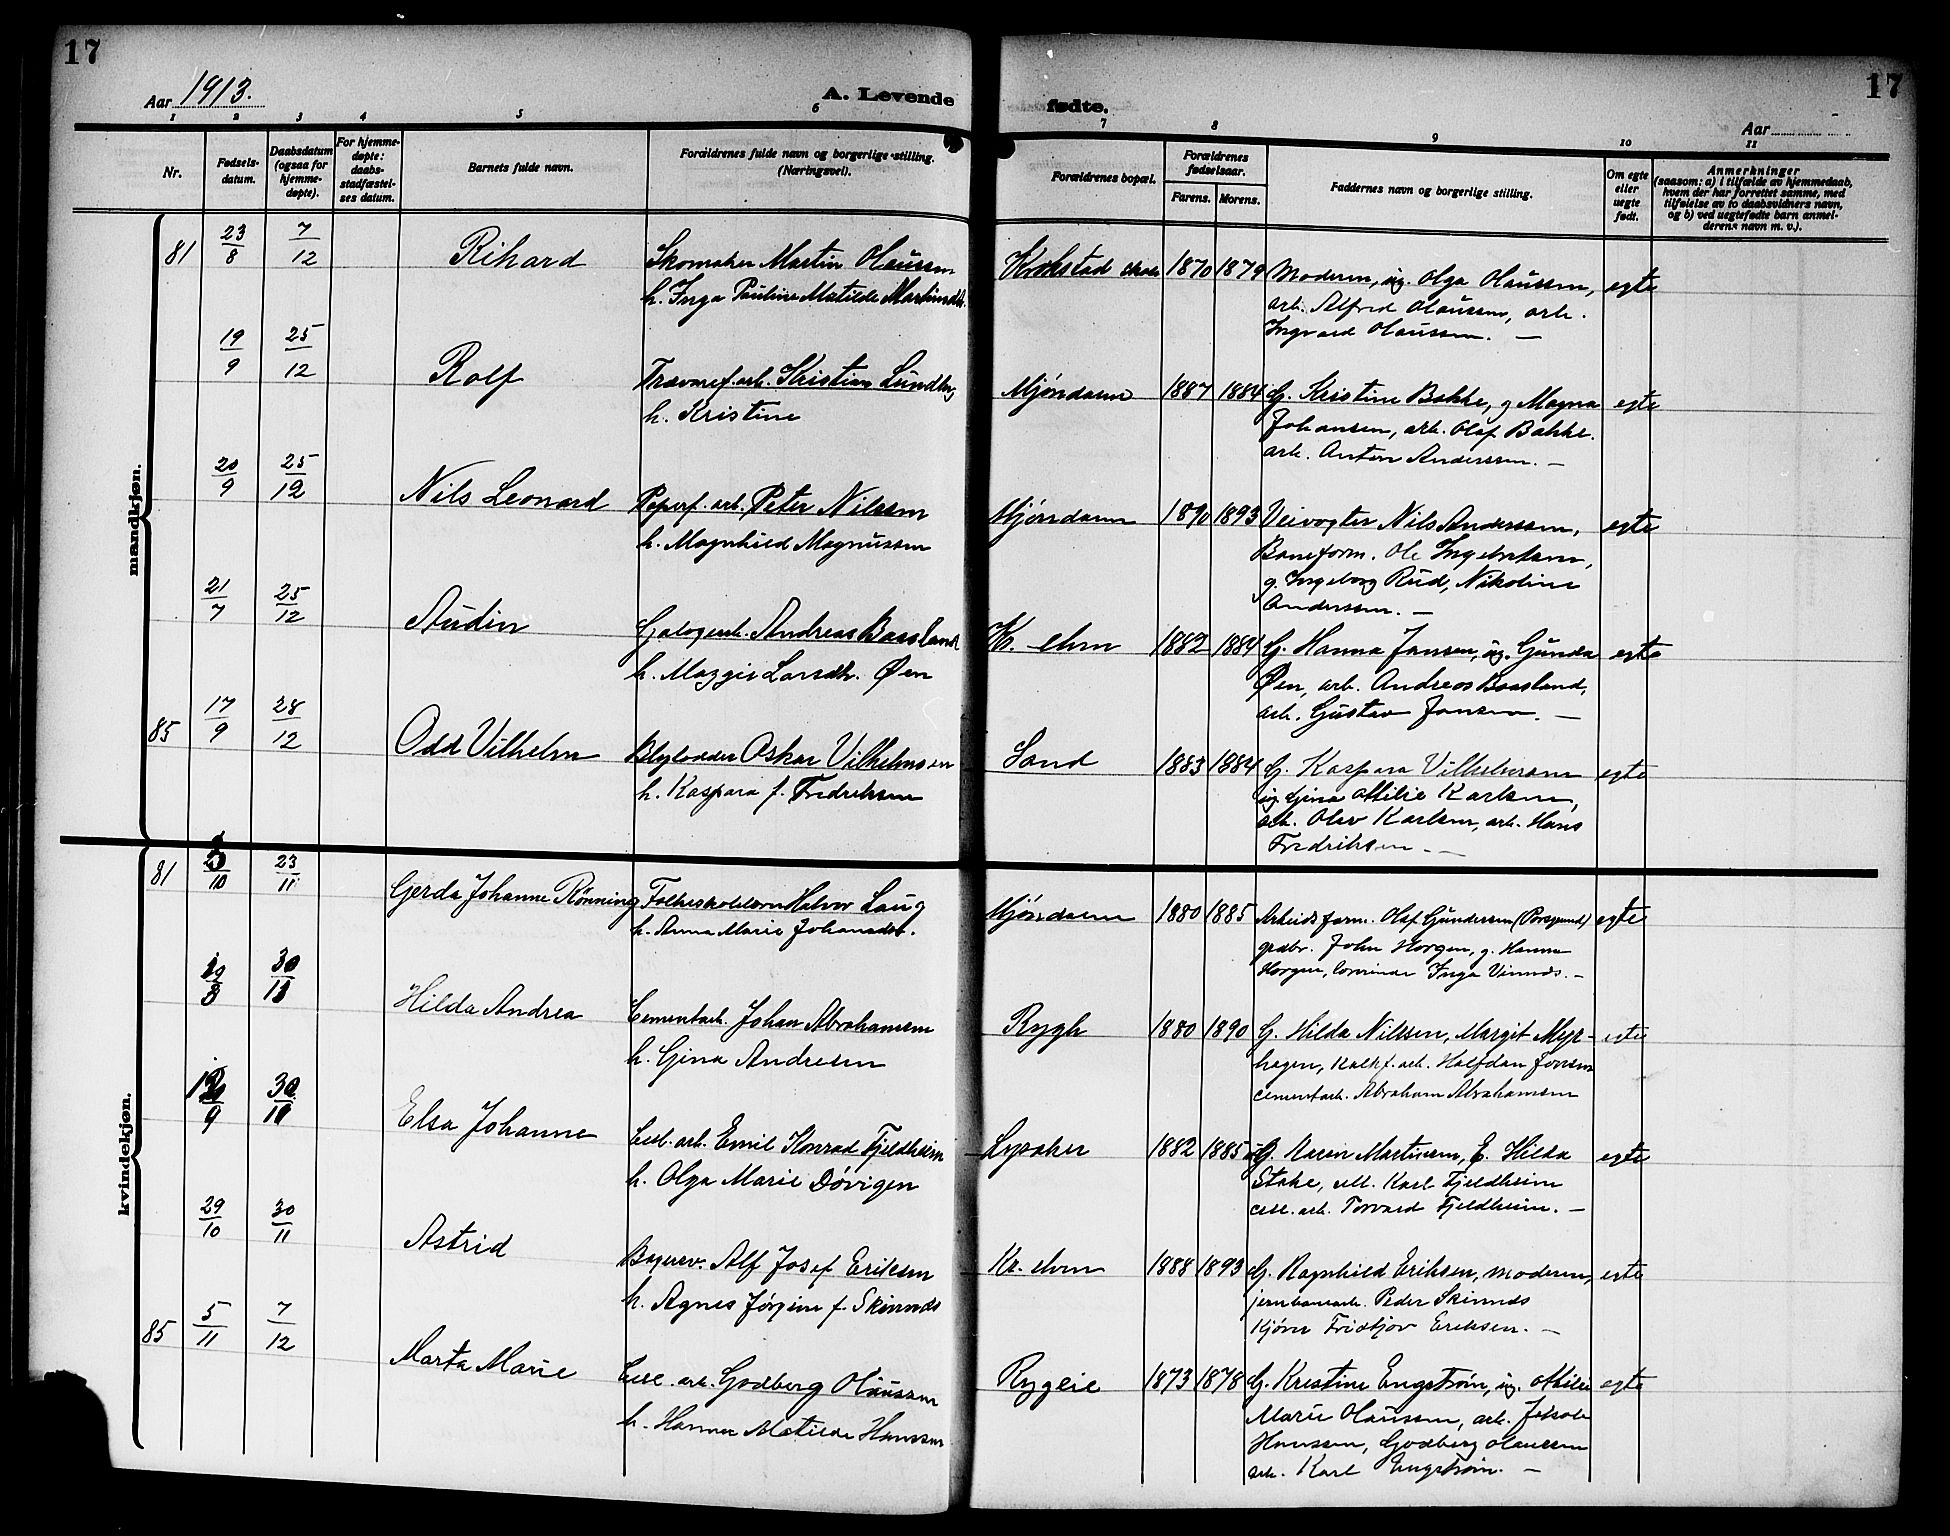 17
17
Aar 1913.
A. Levende fødte.
Aar
1 2 3 4 5 6 7 8 9 10 11
Nr.
Fødsels-
datum.
Daabsdatum
(ogsaa for
hjemme-
døpte).
For hjemme-
døpte:
daabs-
stadfæstel-
ses datum.
Barnets fulde navn.
Forældrenes fulde navn og borgerlige stilling.
(Næringsvei).
Forældrenes bopæl.
Forældrenes
fødselsaar.
Farens. Morens.
Faddernes navn og borgerlige stilling.
Om egte
eller
uegte
født.
Anmerkninger
(saasom: a) i tilfælde av hjemmedaab,
hvem der har forrettet samme, med
tilføielse av to daabsvidners navn,
og b) ved uegtefødte barn anmel-
derens navn m. v.).
mandkjøn.
81 23/8 7/12 Rihard
Skomaker Martin Olaussen
h. Inga Pauline Matilde Martinsdtr.
Krokstad 1870 1879
Moderen, ug. Olga Olaussen,
arb. Alfred Olaussen, arb.
Ingvald Olaussen. —
egte
19/9 25/12 Rolf
Trævaref. arb. Kristian Lundby
h. Kristine
Mjøndalen 1887 1884
G. Kristine Bakke, g. Magna
Johansen, arb. Olaf Bakke.
arb. Anton Anderssen. —
egte
20/9 25/12 Nils Leonard
Papirf. arb. Peter Nilssen
h. Magnhild Magnussen
Mjøndalen 1890 1893
Veivogter Nils Anderssen,
Baneform. Ole Ingebretsen,
g. Ingeborg Rud, Nikoline
Anderssen. —
egte
21/7 25/12 Audin
Andreas Baasland
h. Maggie Larsdtr. Øen
Kr. elven 1882 1884
G. Hanna Jansen, ug. Gunda
Øen, arb. Andreas Baasland,
arb. Gustav Jansen. —
egte
85 17/9 28/12 Odd Vilhelm
Blylodder Oskar Vilhelmsen
h. Kaspara f. Fredriksen
Sand 1883 1884
G. Kaspara Vilhelmsen
ug. Gina Otilie Karlsen,
arb. Olav Karlsen, arb. Hans
Fredriksen. —
egte
kvindekjøn.
81 10 23/11 Gerda Johanne Rønning
Halvor Laug
h. Anna Marie Johansdtr.
Mjøndalen 1880 1885
Arbeidsform. Olaf Gundersen (Porsgrund)
gaabr. John Horgen, g. Hanna
Horgen, Inga Vinnes. —
egte
Hilda Andrea
Cementarb. Johan Abrahamsen
h. Gina Andresen
Rygh 1880 1890
G. Hilda Nilssen, Margit Myr-
hagen, Kalkf. arb. Halfdan Jonsen
cementarb. Abraham Abrahamsen
egte
9 Elsa Johanne
Cell. arb. Emil Konrad Fjeldheim
h. Olga Marie Døvigen
Lysaker 1882 1885
G. Karen Martinsen, E. Hilda
Stake, cell. Karl Fjeldheim
cell. arb. Torvald Fjeldheim. —
egte
29/10 30/11 Astrid
Alf Josef Eriksen
h. Agnes Jørgine f. Skinnds
Kr. elven 1888 1893
G. Ragnhild Eriksen, moderen,
jernbanearb. Peder Skinnds
Kjører Fridtjov Eriksen. —
egte
85 5/11 7/12 Marta Marie
Cell. arb. Godberg Olaussen
h. Hanna Matilde Hanssen
Rygeie 1873 1878
G. Kristine Engstrøm, ug. Otilie
Marie Olaussen, arb. Jakob
Hanssen, Godberg Olaussen
arb. Karl Engstrøm. —
egte